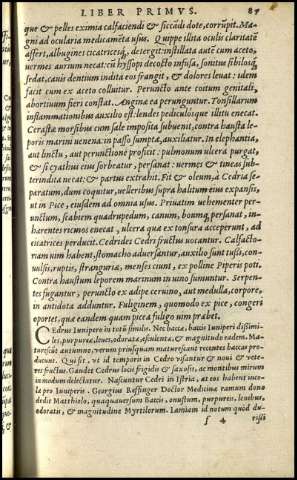 LIBER PRIMVS. 87
que & pelles eximia calfaciendi & siccādi dote, corrupit. Ma-
gni ad ocularia medicamēta usus. Quippe illita oculis claritatē
affert, albugines cicatricesq́; detergit: instillata autē cum aceto,
uermes aurium necat: cū hyssopi decocto infusa, sonitus sibilosq́;
sedat, cauis dentium indita eos frangit, & dolores leuat: idem
facit cum ex aceto colluitur. Peruncto ante coitum genitali,
abortiuum fieri constat. Angina ea perunguntur. Tonsillarum
inflammationibus auxilio est: lendes pediculosque illitu enecat.
Cerastæ morsibus cum sale imposita subuenit, contra hausta le-
poris marini uenena. in passo sumpta, auxiliatur. In elephantia,
aut linctu, aut perunctione proficit: pulmonum ulcera purgat,
& si cyathus eius sorbeatur, persanat: uermes & tineas sub-
terindita necat: & partus extrahit. Fit & oleum, à Cedria se-
paratum, dum coquitur, uelleribus supra halitum eius expansis,
ut in Pice, eiusdem ad omnia usus. Priuatim uehementer per-
unctum, scabiem quadrupedum, canum, boumq́; persanat, in-
hærentes ricinos enecat, ulcera quæ ex tonsura acceperunt, ad
cicatrices perducit. Cedrides Cedri fructus uocantur. Calfacto-
riam uim habent, stomacho aduersantur, auxilio sunt tussi, con-
uulsis, ruptis, stranguriæ, menses ciunt, ex polline Piperis poti.
Contra haustum leporem marinum in uino sumuntur. Serpen-
tes fugantur, peruncto ex adipe ceruino, aut medulla, corpore,
in antidota adduntur. Fuliginem, quomodo ex pice, congeri
oportet, quæ eandem quam picea fuligo uim præbet.
CEdrus Iunipero in totū similis. Nec baccæ, baccis Iuniperi dißimi-
les, purpureæ, leues, odoratæ, esculentæ, & magnitudo eadem. Ma-
turescūt autumno, uerum priusquam maturescant recentes baccas pro-
ducunt. Qui fit, ut id temporis in Cedro uisantur & noui & uete-
res fructus. Gaudet Cedrus locis frigidis & saxosis, ac montibus mirum
in modum delectatur. Nascuntur Cedri in Istria, at eos habent inco-
læ pro Iuniperis. Georgius Reßinger Doctor Medicinæ ramum dono
dedit Matthiolo, quaquauersum Baccis, onustum, purpureis, leuibus,
odoratis, & magnitudine Myrtilorum. Lamiam id notum quod du-
f 4 rissi